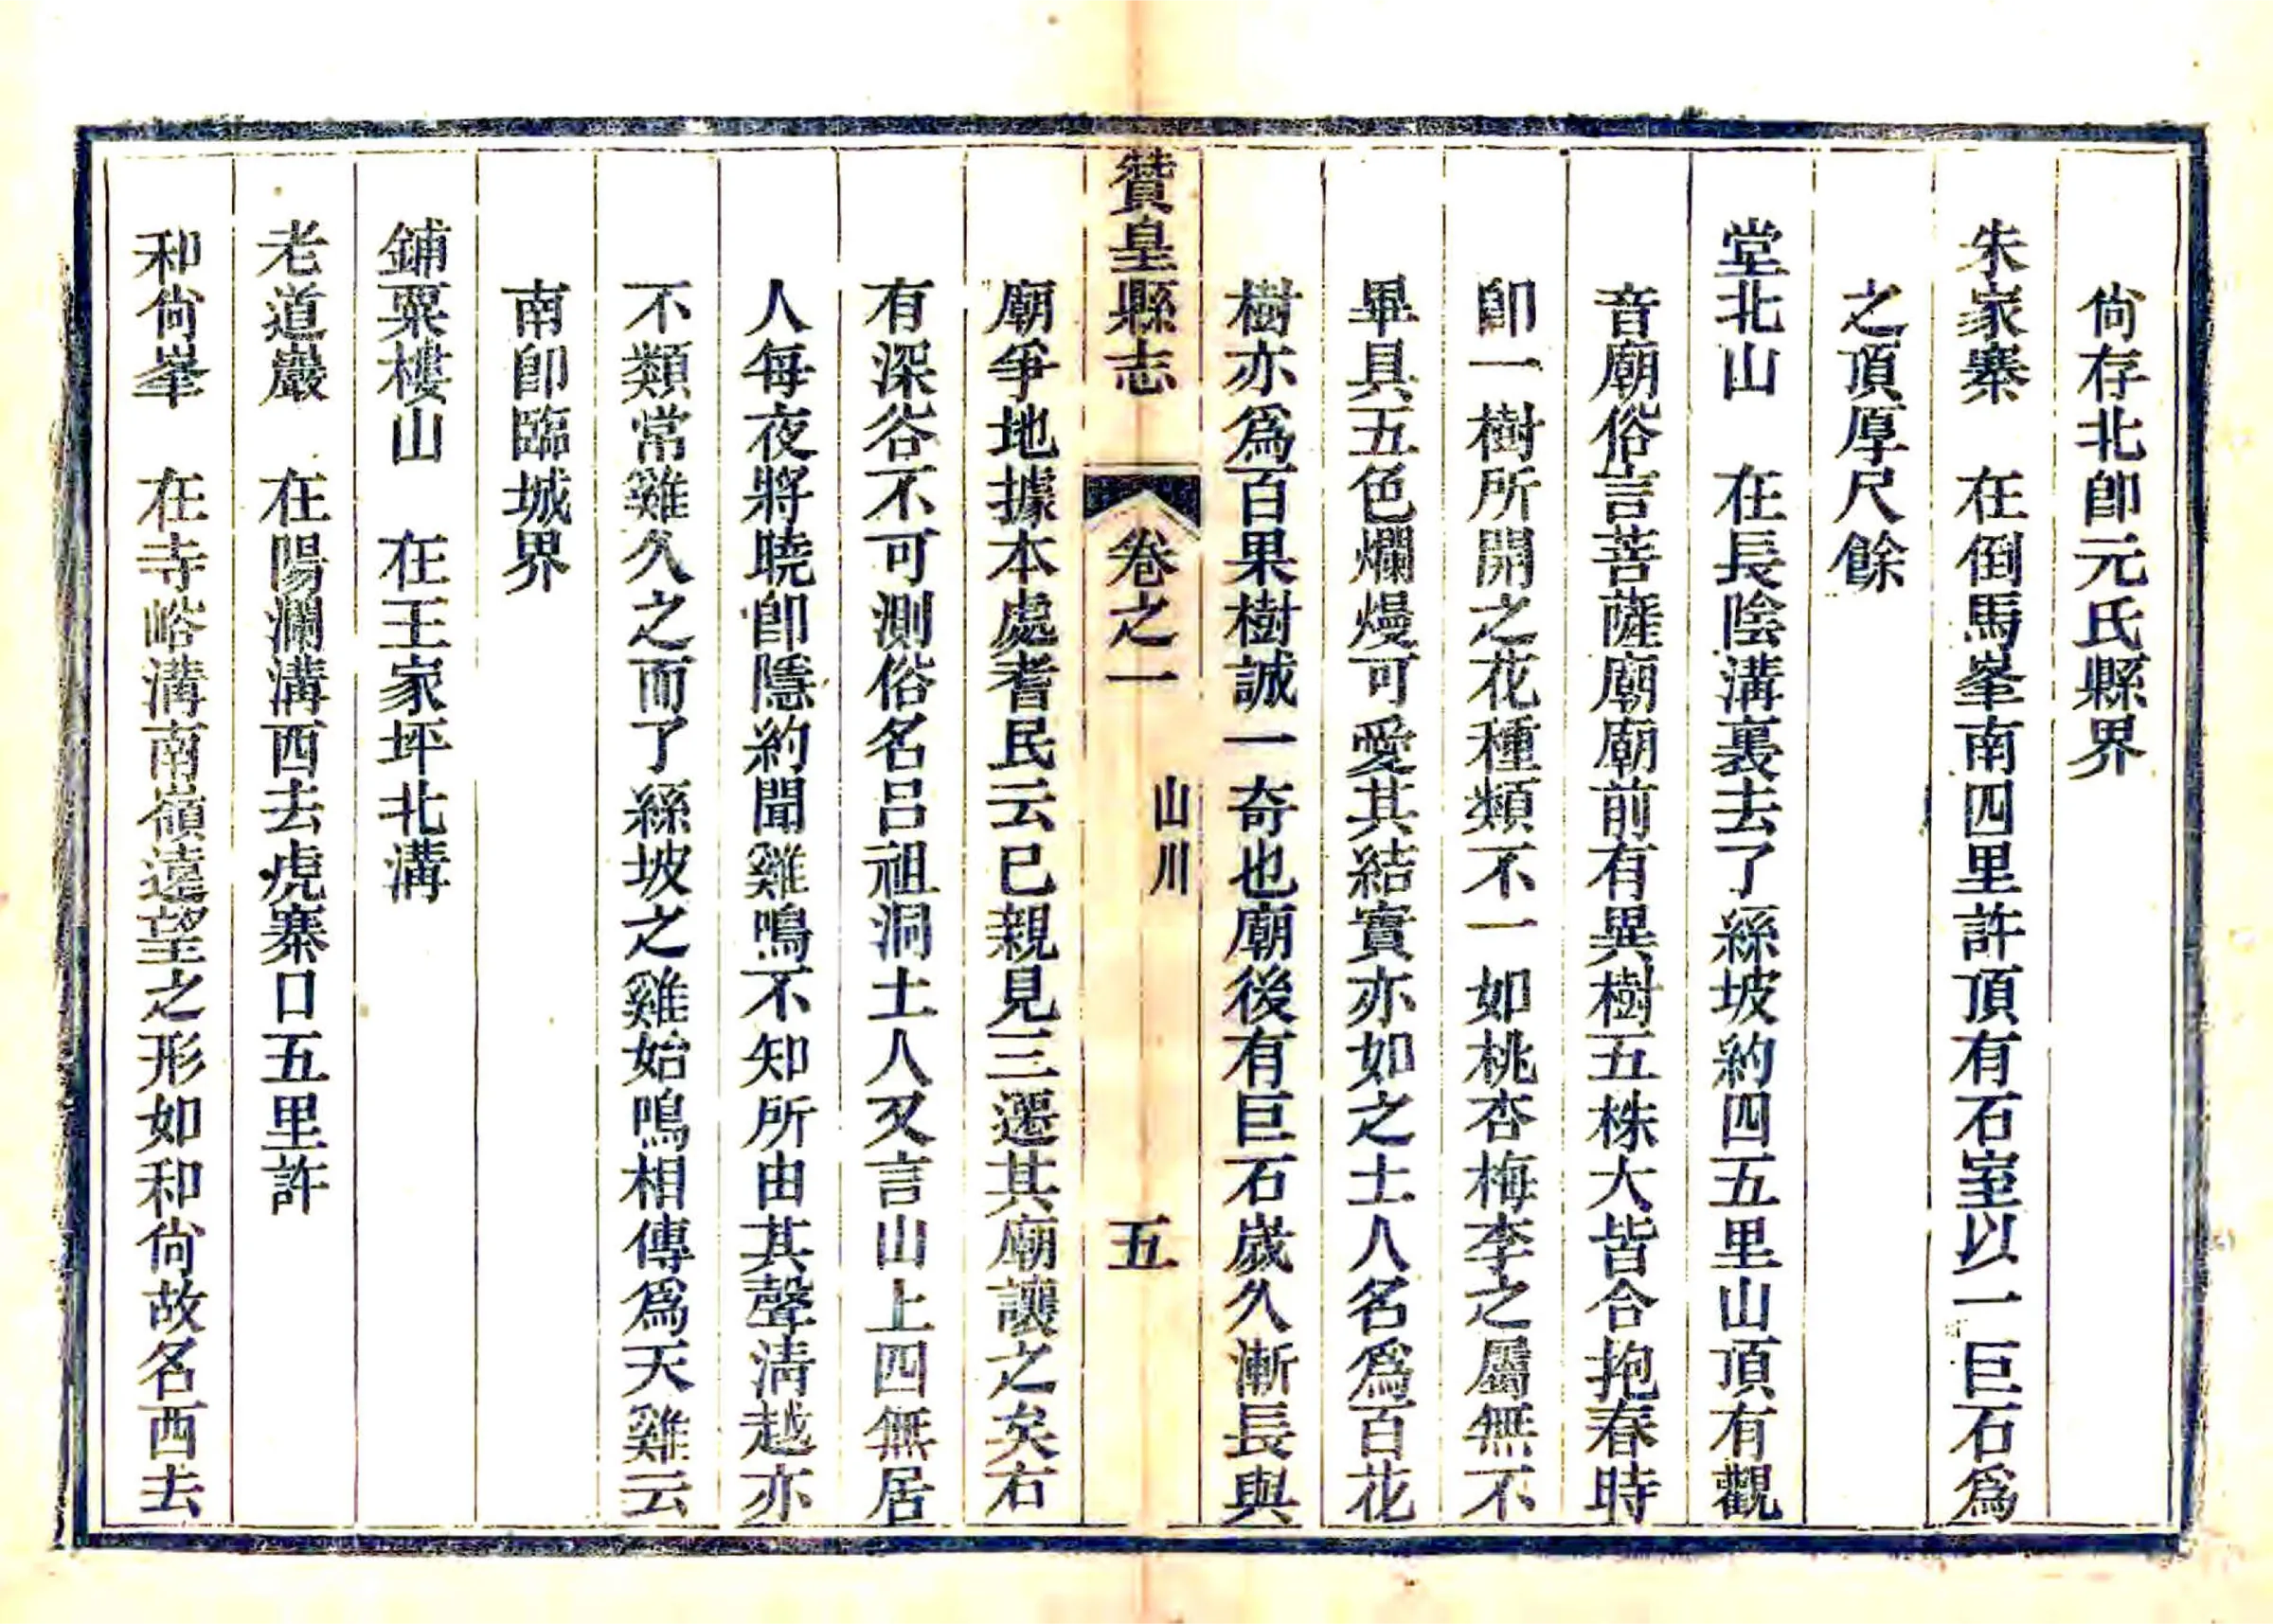 尙存北卽元氏縣界
朱家寨　在倒馬峯南四里許頂有石室以一巨石爲
之頂厚尺餘
堂北山　在長陰溝裏去了絲坡約四五里山頂有觀
音廟俗言菩薩廟廟前有異樹五株大皆合抱春時
卽一樹所開之花種類不一如桃杏梅李之屬無不
畢具五色爛熳可愛其結實亦如之土人名爲百花
樹亦爲百果樹誠一奇也廟後有巨石歲久漸長與
贊皇縣志　卷之一　山川　五
廟爭地據本處耆民云已親見三遷其廟讓之矣右
有深谷不可測俗名呂祖洞土人又言山上四無居
人每夜將曉卽隱約聞雞鳴不知所由其聲淸越亦
不類常雞久之而了絲坡之雞始鳴相傳爲天雞云
南卽臨城界
鋪粟樓山　在王家坪北溝
老道巖　在陽瀾溝西去虎寨口五里許
和尙峯　在寺峪溝南嶺遠望之形如和尙故名西去